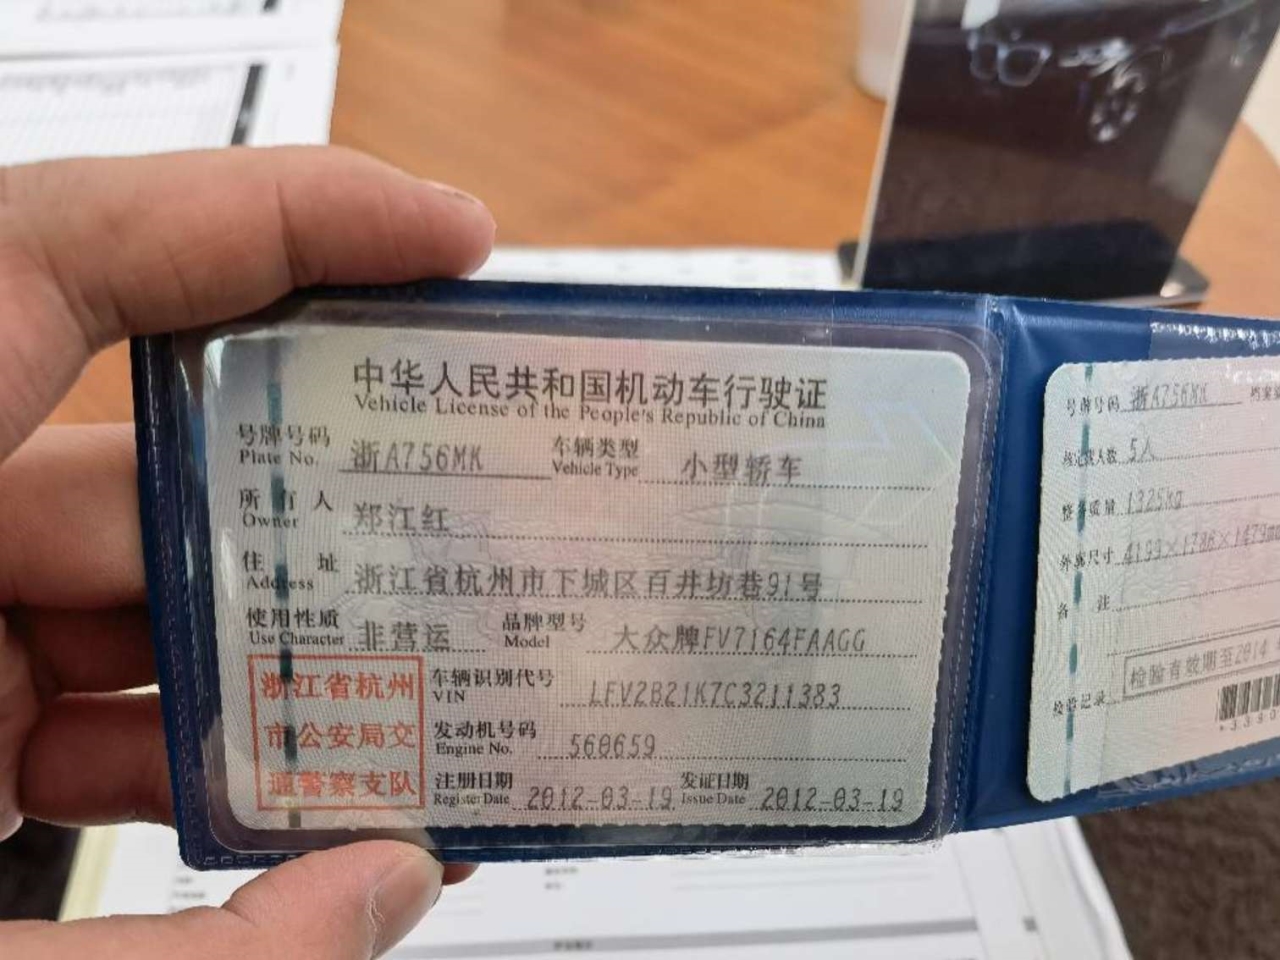 中华人民共和国机动车行驶证
Vehicle License of the People's Republic of China
号牌号码 浙A756MK 车辆类型 小型轿车
Plate No. Vehicle Type
所有人 郑江红
Owner
住址 浙江省杭州市下城区百井坊巷91号
Address
使用性质 非营运 品牌型号 大众牌FV7164FAAGG
Use Character Model
浙江省杭州
市公安局交
通警察支队
车辆识别代号 LFV2B21K7C3211383
VIN
发动机号码 560659
Engine No.
注册日期 2012-03-19 发证日期 2012-03-19
Register Date Issue Date
号牌号码 浙A756MK
核定载人数 5人
整备质量 1325kg
外廓尺寸
备注
检验有效期至2014
检验记录